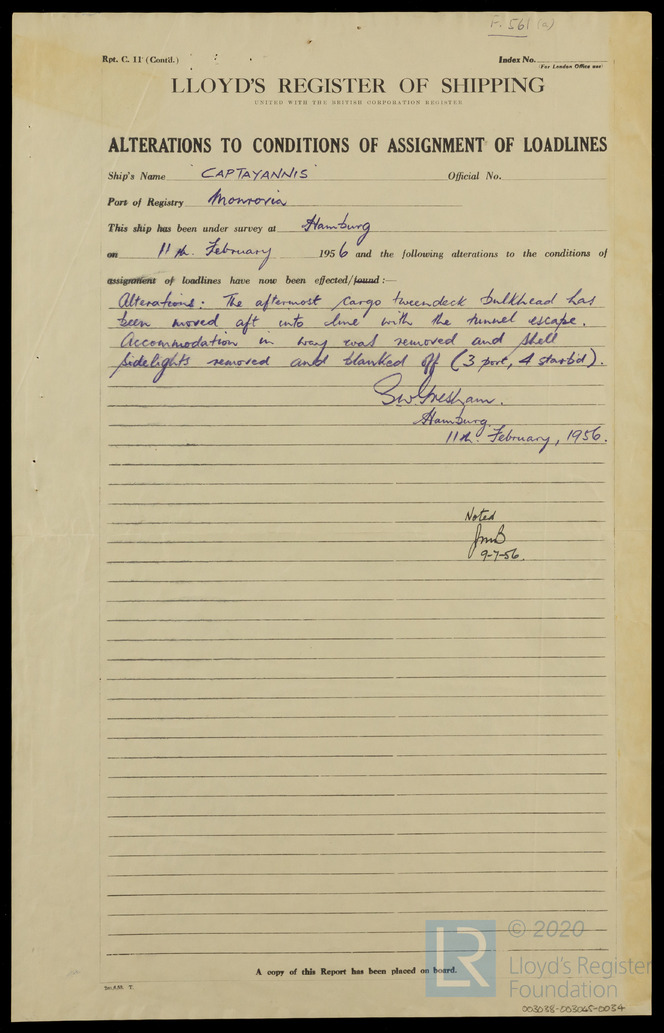 F. 561 (a)
Rpt. C. 11 (Contd.)
Index No.
(For London Office use)
LLOYD'S REGISTER OF SHIPPING
UNITED WITH THE BRITISH CORPORATION REGISTER
ALTERATIONS TO CONDITIONS OF ASSIGNMENT OF LOADLINES
Ship's Name "CAPTAYANNIS" Official No.
Port of Registry Monrovia
This ship has been under survey at Hamburg
on 11th. February 1956 and the following alterations to the conditions of
assignment of loadlines have now been effected/found:—
Alterations: The aftermost cargo tweendeck bulkhead has
been moved aft into line with the tunnel escape.
Accommodation in way was removed and shell
sidelights removed and blanked off (3 port, 4 starb'd).
Hamburg.
11th. February, 1956.
Noted
JMB
9-7-56.
A copy of this Report has been placed on board.
© 2020
LR
Lloyd's Register
Foundation
003038-003045-0034